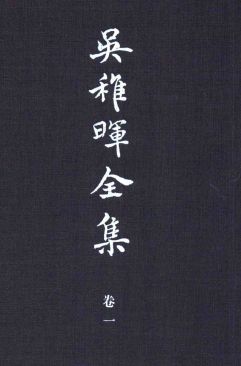 吳稚暉全集
卷一